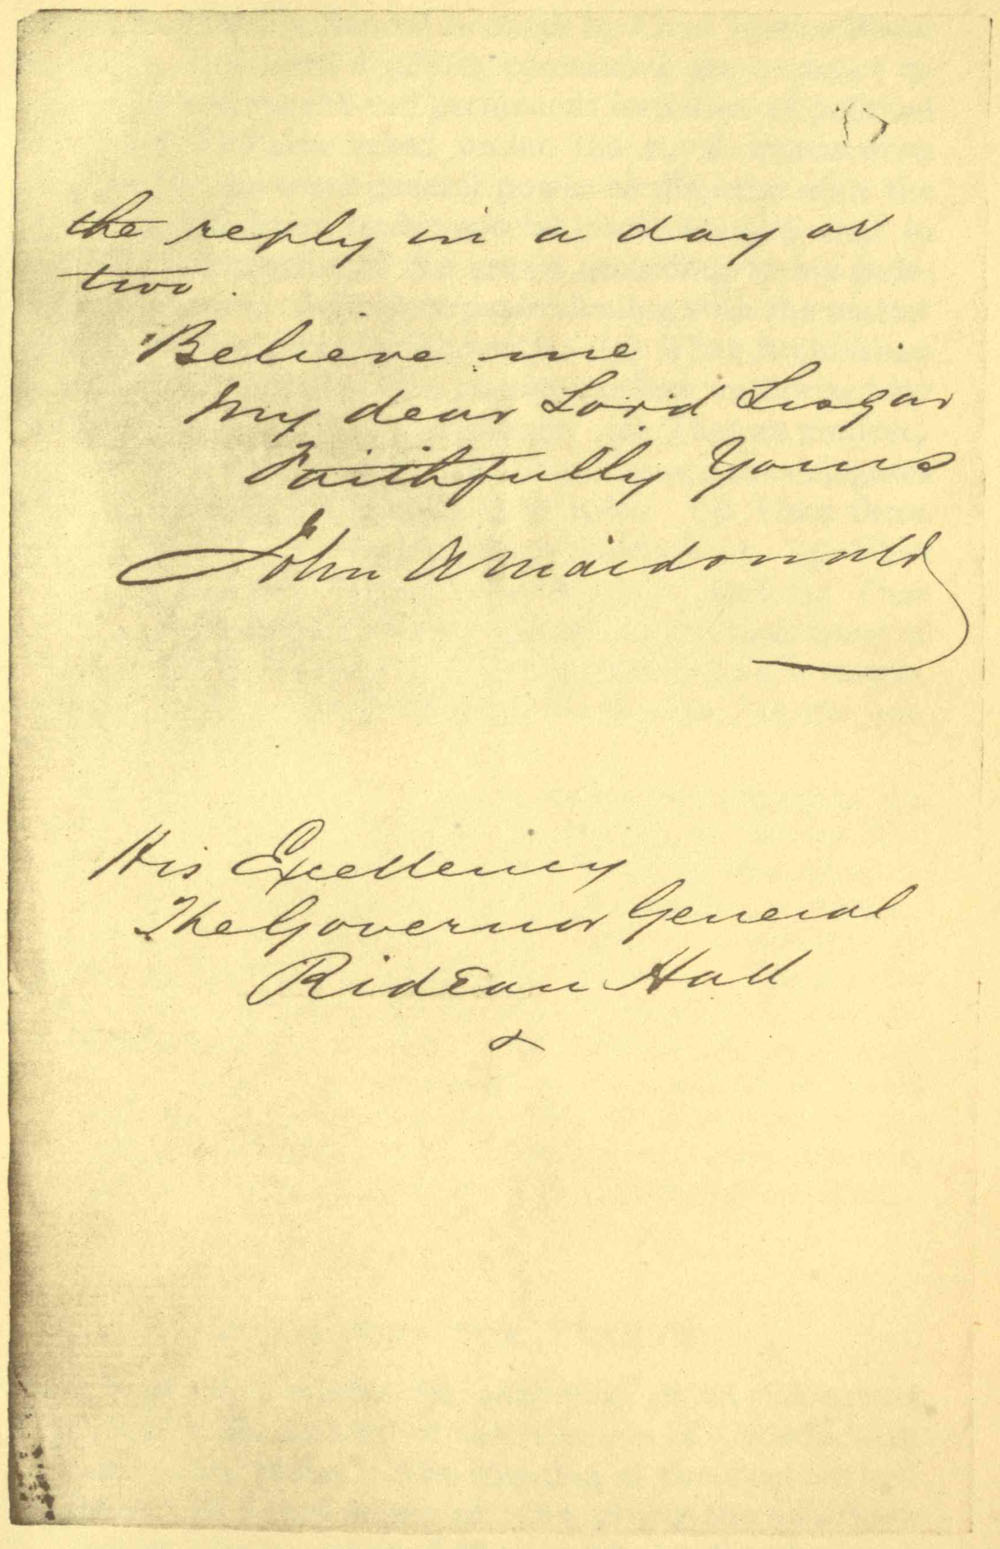 the reply in a day or
two.
Believe me
My dear Lord Lisgar
Faithfully Yours
John A Macdonald
His Excellency
The Governor General
Rideau Hall